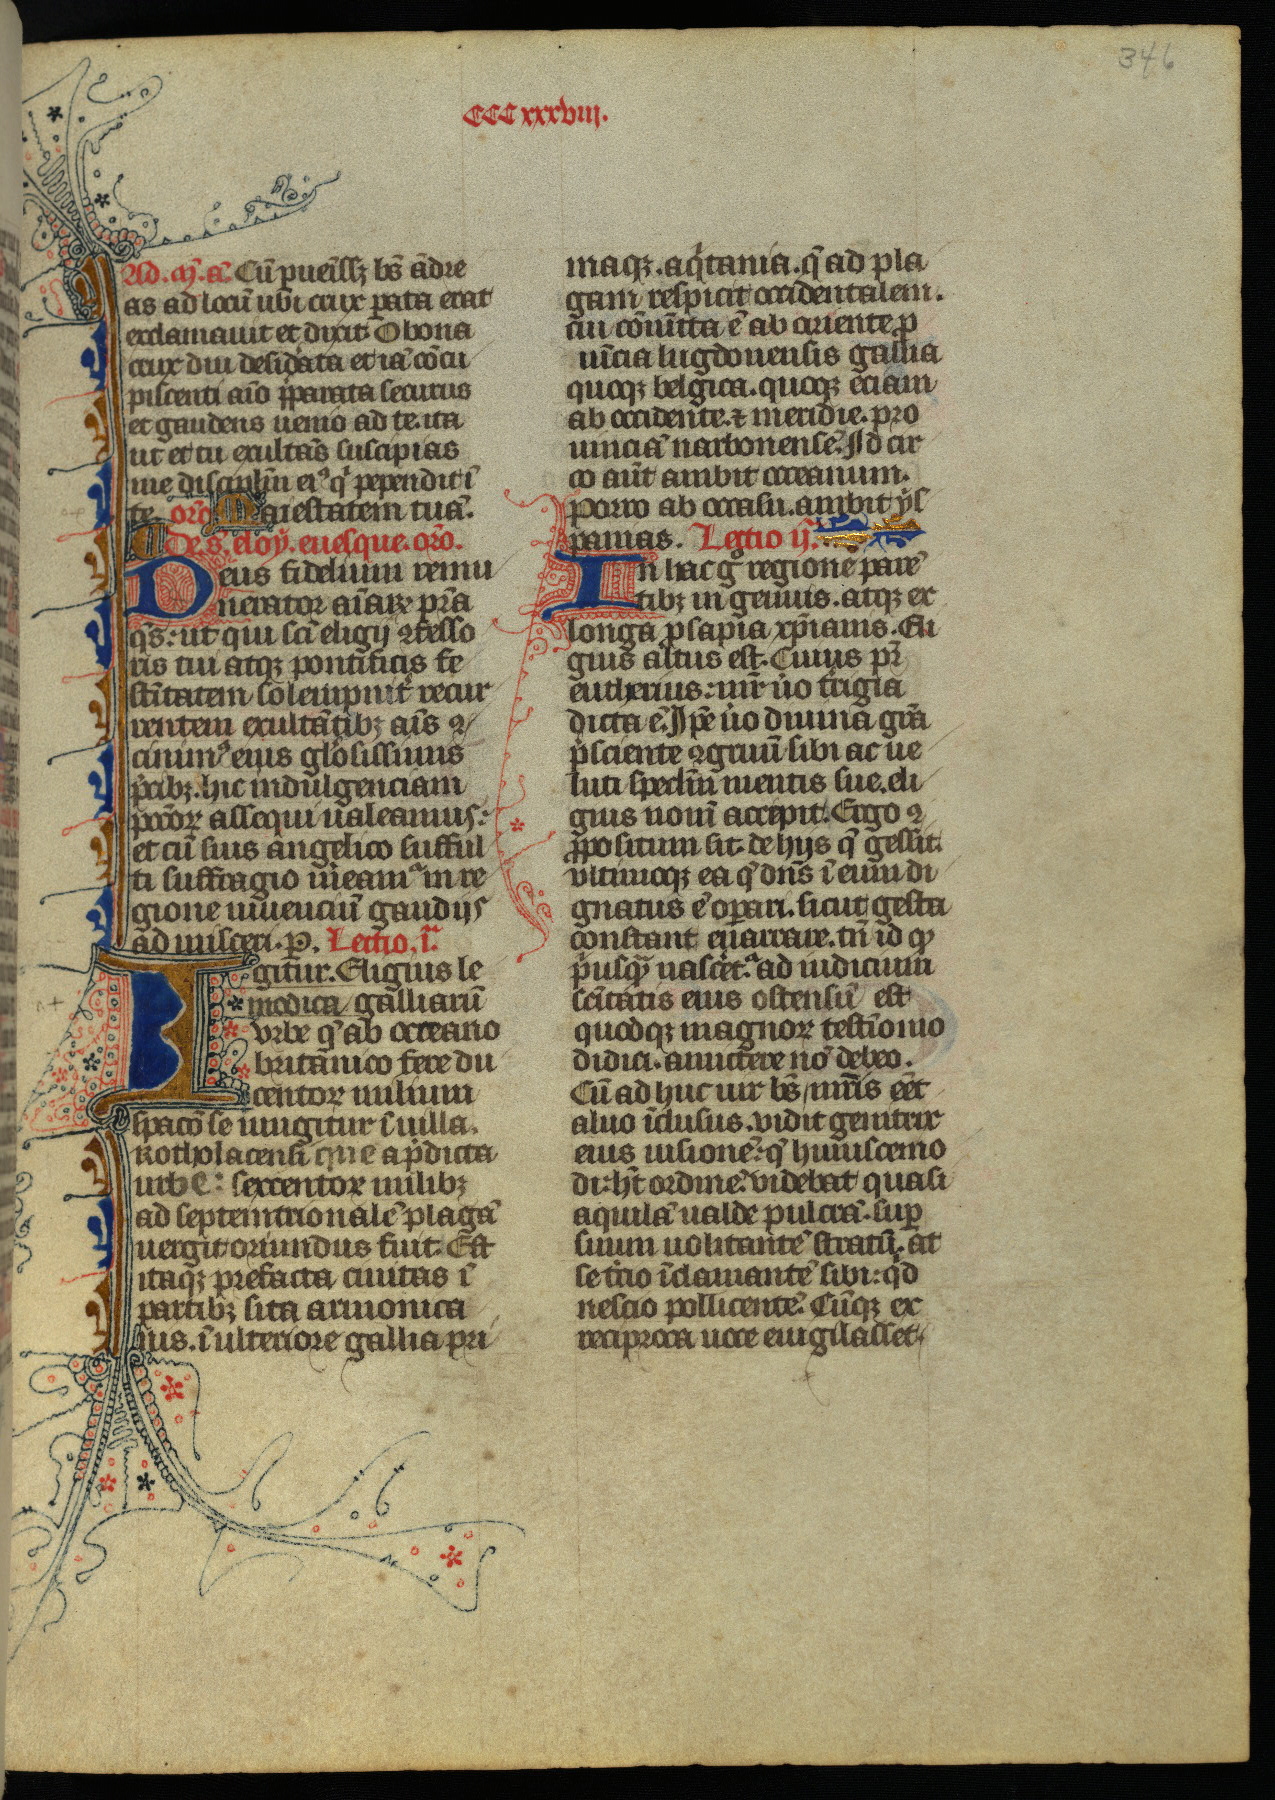 346
CCCxxxviij.
Ad. m̄. a̅. Cu̅ p̲uen̅iss̅z b̅s a̅dre
as ad locu̅ ubi crux p̲ata erat
exclamauit et dixit. O bona
crux diu desid̅ata et ia̅ co̅cu
piscenti ai̅o p̅parata securus
et gaudens uenio ad te. ita
ut et tu exulta̅s suscipias
me discipl̅m ei⁹ qⁱ pependit i̅
te. or̅o Maiestatem tua̅.
De. s. eloy. euesque. or̅o.
Deus fidelium remu
nerator ai̅aꝝ p̅ra
q̅s: ut qui sc̅i eligij ꝯfesso
ris tui atqꝫ pontificis fe
stiu̅tatem solempnit̅ recur
rentem exulta̅tibꝫ ai̅s ꝯ
cinim⁹ eius gl̅osissimis
p̅cibꝫ. hic indulgenciam
pcc̅oꝝ assequi ualeamus:
et cu̅ suis angelico sufful
ti suffragio m̅eam⁹ in re
gione uiuenciu̅ gaudijs
ad misceri. P. Lectio. i̅a.
Igitur. Eligius le
modica galliaru̅
vrbe q̅ ab occeano
brita̅nico fere du
centoꝝ milium
spaco̅ se iungitur i̅ uilla.
Rotholacensi que a p̅dicta
urbe: sexcentoꝝ milibꝫ
ad septemtrionale̅ plaga̅
uergit oriundus fuit. Est
itaqꝫ prefacta ciuitas i̅
partibꝫ sita armonica
nus. i̅ ulteriore gallia pri
maqꝫ. aq̅tania. q̅ ad pla
gam respicit occidentalem.
cui co̅iu̅cta e̅ ab oriente p̲
ui̅cia lugdonensis gallia
quoqꝫ belgica. quoqꝫ eciam
ab occidente. ⁊ meridie. pro
uincia̅ narbonense̅. Id cir
co aut̅ ambit occeanum.
Porro ab occasu. ambit ys
panias. Lectio ij̅.
In hac gͦ regione pare̅
tibꝫ ingenuus. atqꝫ ex
longa p̲sapia xp̅ianis. Eli
gius altus est. Cuius pr̅
eutherius: mr̅ u̅o t̅rigia
dicta e̅. Ip̅e u̅o diuina gr̅a
p̅sciente ꝯgruu̅ sibi ac ue
luti specl̅m mentis sue. eli
gius nom̅ accepit. Ergo ꝯ
p̅positum sit. de hijs q̅ gessit.
vltimoqꝫ ea q̅ dn̅s i̅ eum di
gnatus e̅ op̲ari. sicut gesta
constant enarrare. tn̅ id qͦ
p̅usq̅ nascer̅et⁹ ad iudicium
sc̅itatis eius ostensu̅ est
quodqꝫ magnoꝝ testi̅onio
didici. amictere no̅ debeo.
Cu̅ ad huc uir b̅s mr̅is e̅et
aluo i̅clusus. vidit genitrix
eius uisione̅: q̅ huiuscemo
di: h̅t ordine̅. videbat quasi
aquila̅ ualde pulcra̅. sup̲
suum uolitante̅ stratu̅. at
se t̅cio i̅clamante̅ sibi: q̅d
nescio pollicente̅. Cu̅qꝫ ex
reciproca uoce euigilasset.